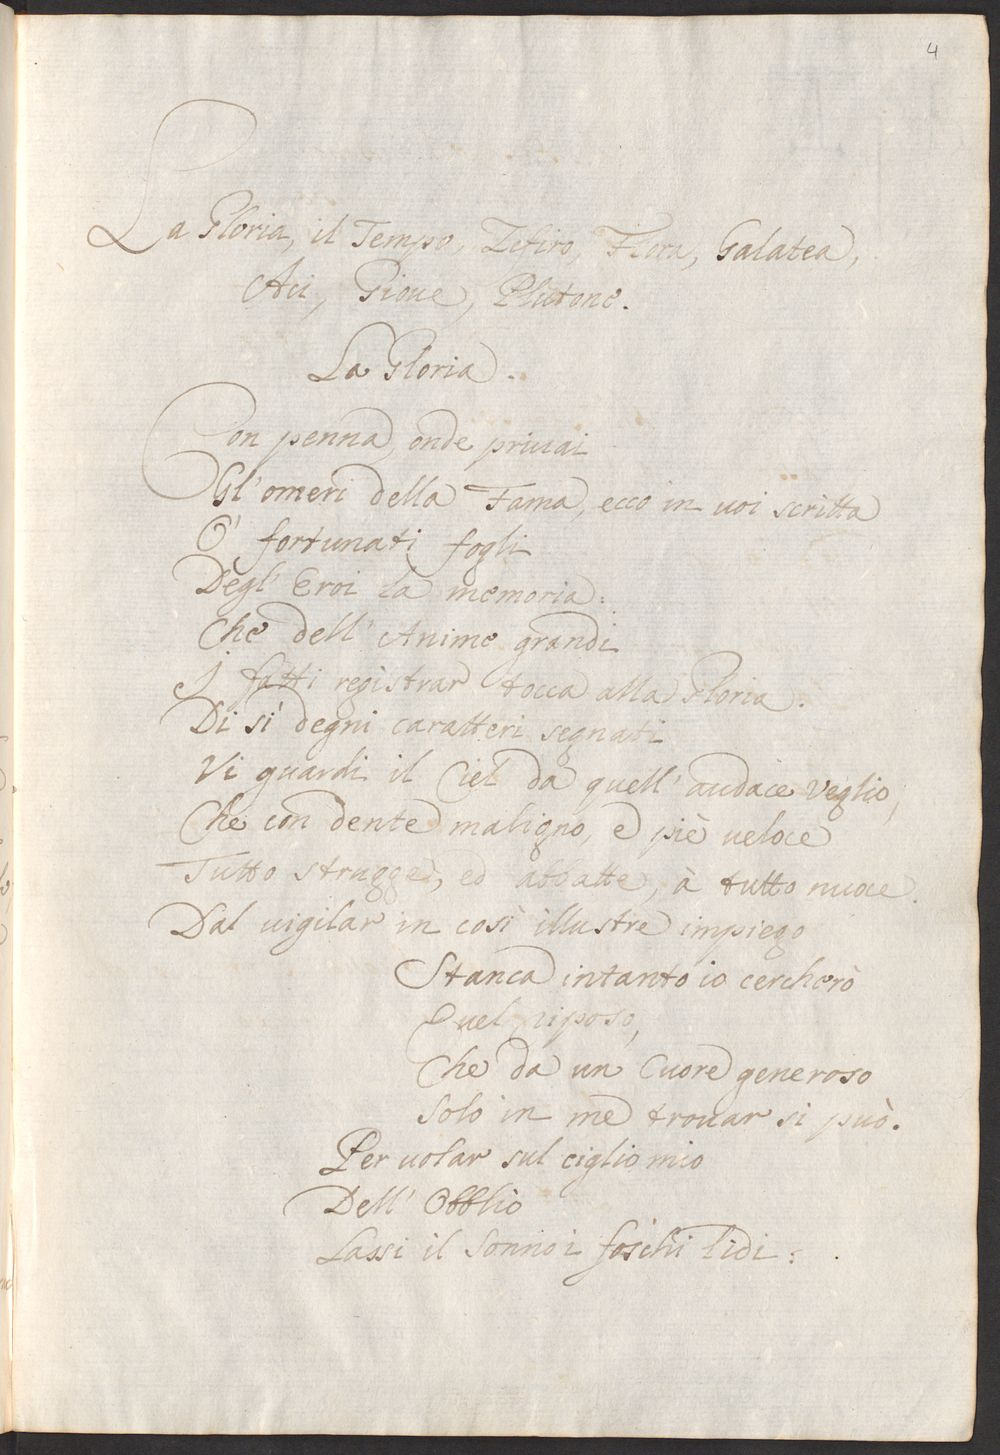 4
La Gloria, il Tempo, Zefiro, Flora, Galatea,
Aci, Gioue, Plutone.
La Gloria.
Con penna, onde priuai
Gl' omeri della Fama, ecco in uoi scritta
O' fortunati fogli
Degl' Eroi la memoria:
Che dell' Anime grandi
I fatti registrar tocca alla Gloria.
Di sì degni caratteri segnati
Vi guardi il Ciel da quell' audace Veglio,
Che con dente maligno, e piè ueloce
Tutto strugge, ed abbatte, à tutto nuoce.
Dal uigilar in così illustre impiego
Stanca intanto io cercherò
Quel riposo,
Che da un Cuore generoso
Solo in me trouar si può.
Per uolar sul ciglio mio
Dell' Obblio
Lassi il Sonno i foschi lidi: